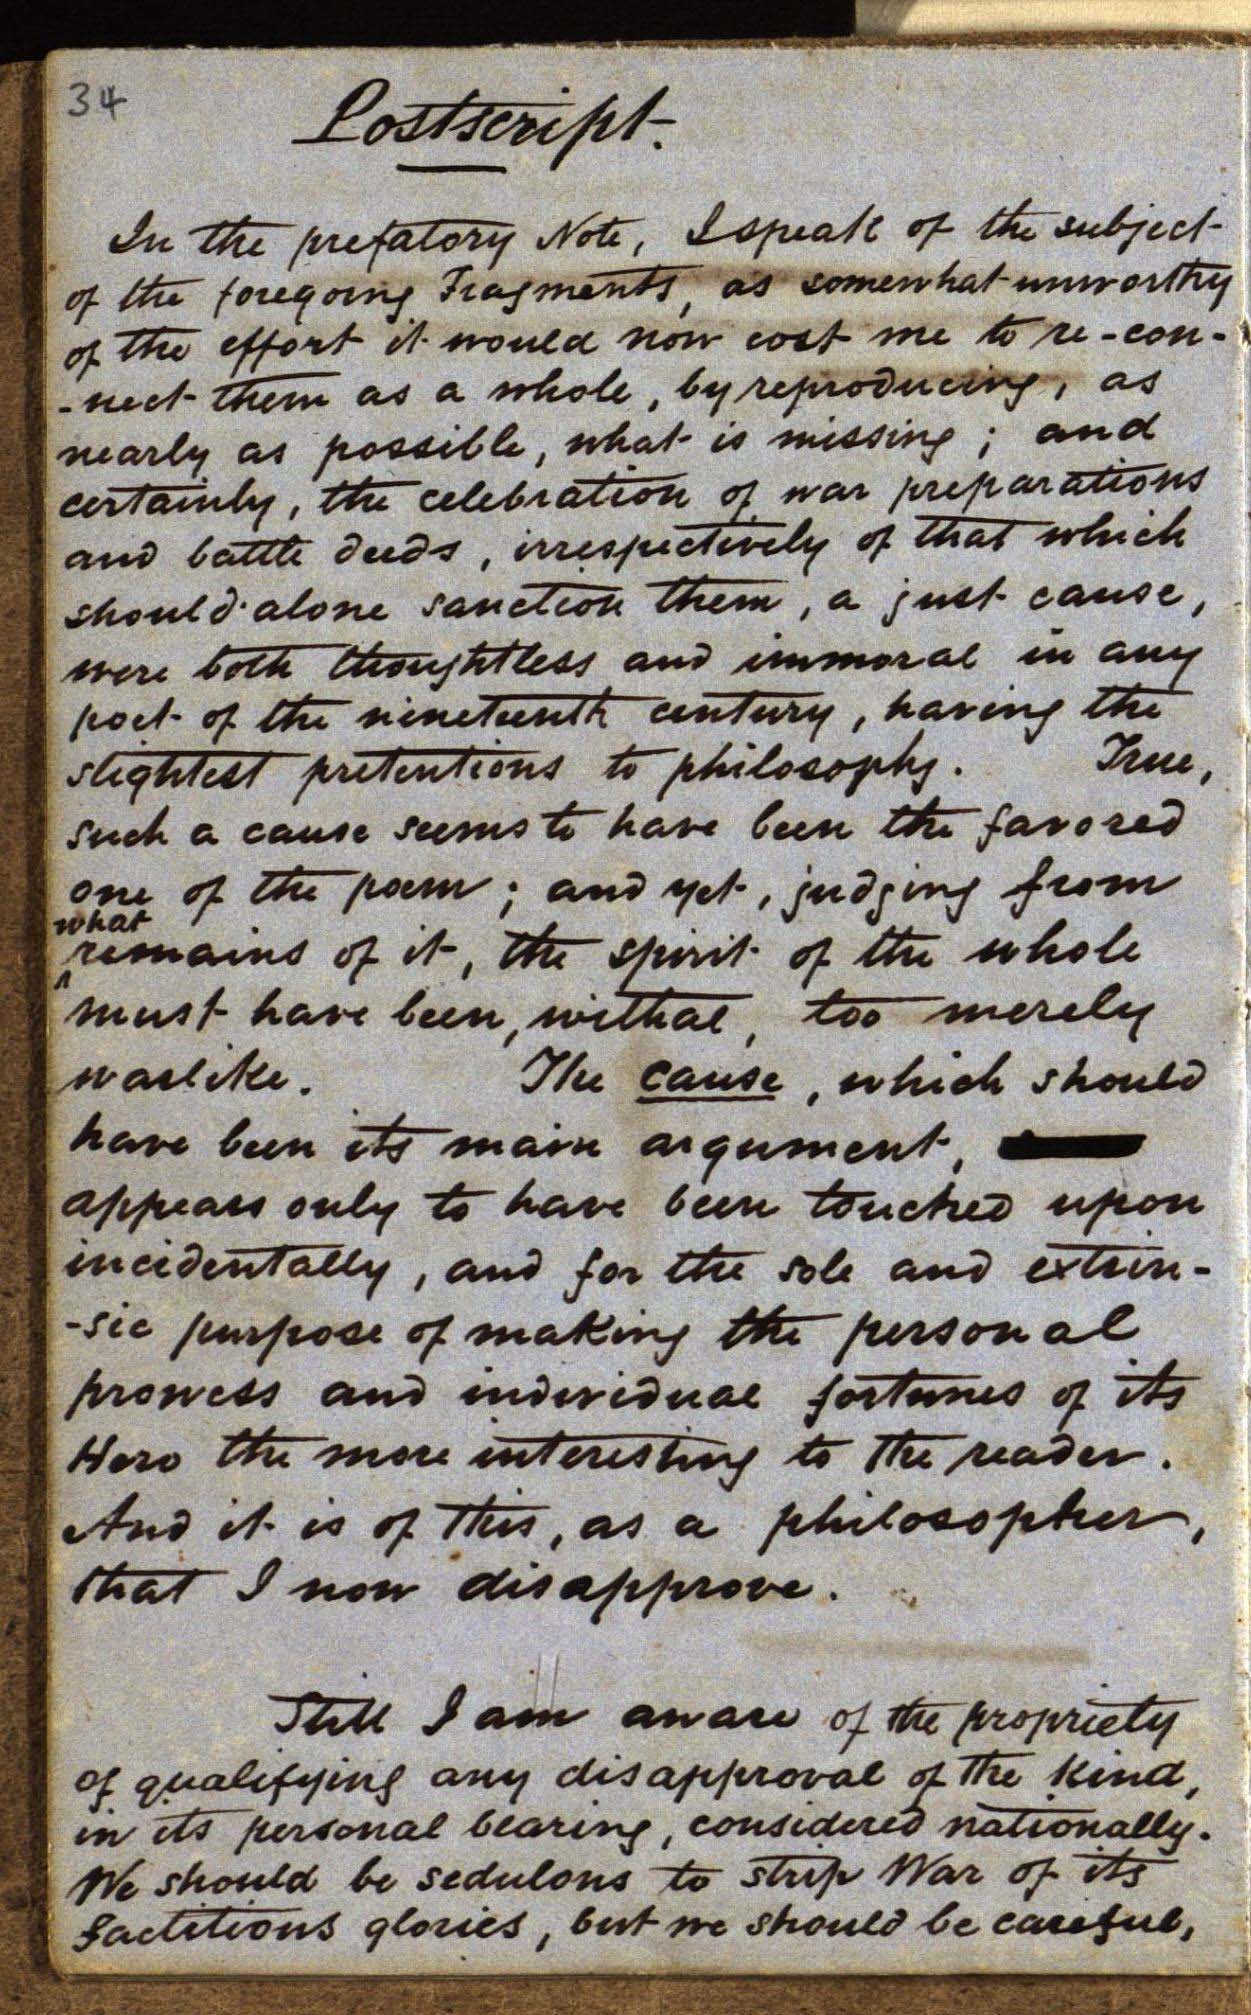 34
Postscript.
In the prefatory Note, I speak of the subject
of the foregoing Fragments, as somewhat unworthy
of the effort it would now cost me to re-con-
-nect them as a whole, by reproducing, as
nearly as possible, what is missing; and
certainly, the celebration of war preparations
and battle deeds, irrespectively of that which
should alone sanction them, a just cause,
were both thoughtless and immoral in any
poet of the nineteenth century, having the
slightest pretentions to philosophy. True,
such a cause seems to have been the favored
one of the poem; and yet, judging from
what
remains of it, the spirit of the whole
must have been, withal, too merely
warlike. The cause, which should
have been its main argument,
appears only to have been touched upon
incidentally, and for the sole and extrin-
-sic purpose of making the personal
prowess and individual fortunes of its
Hero the more interesting to the reader.
And it is of this, as a philosopher,
that I now disapprove.
Still I am aware of the propriety
of qualifying any disapproval of the kind,
in its personal bearing, considered nationally.
We should be sedulous to strip War of its
factitious glories, but we should be careful,